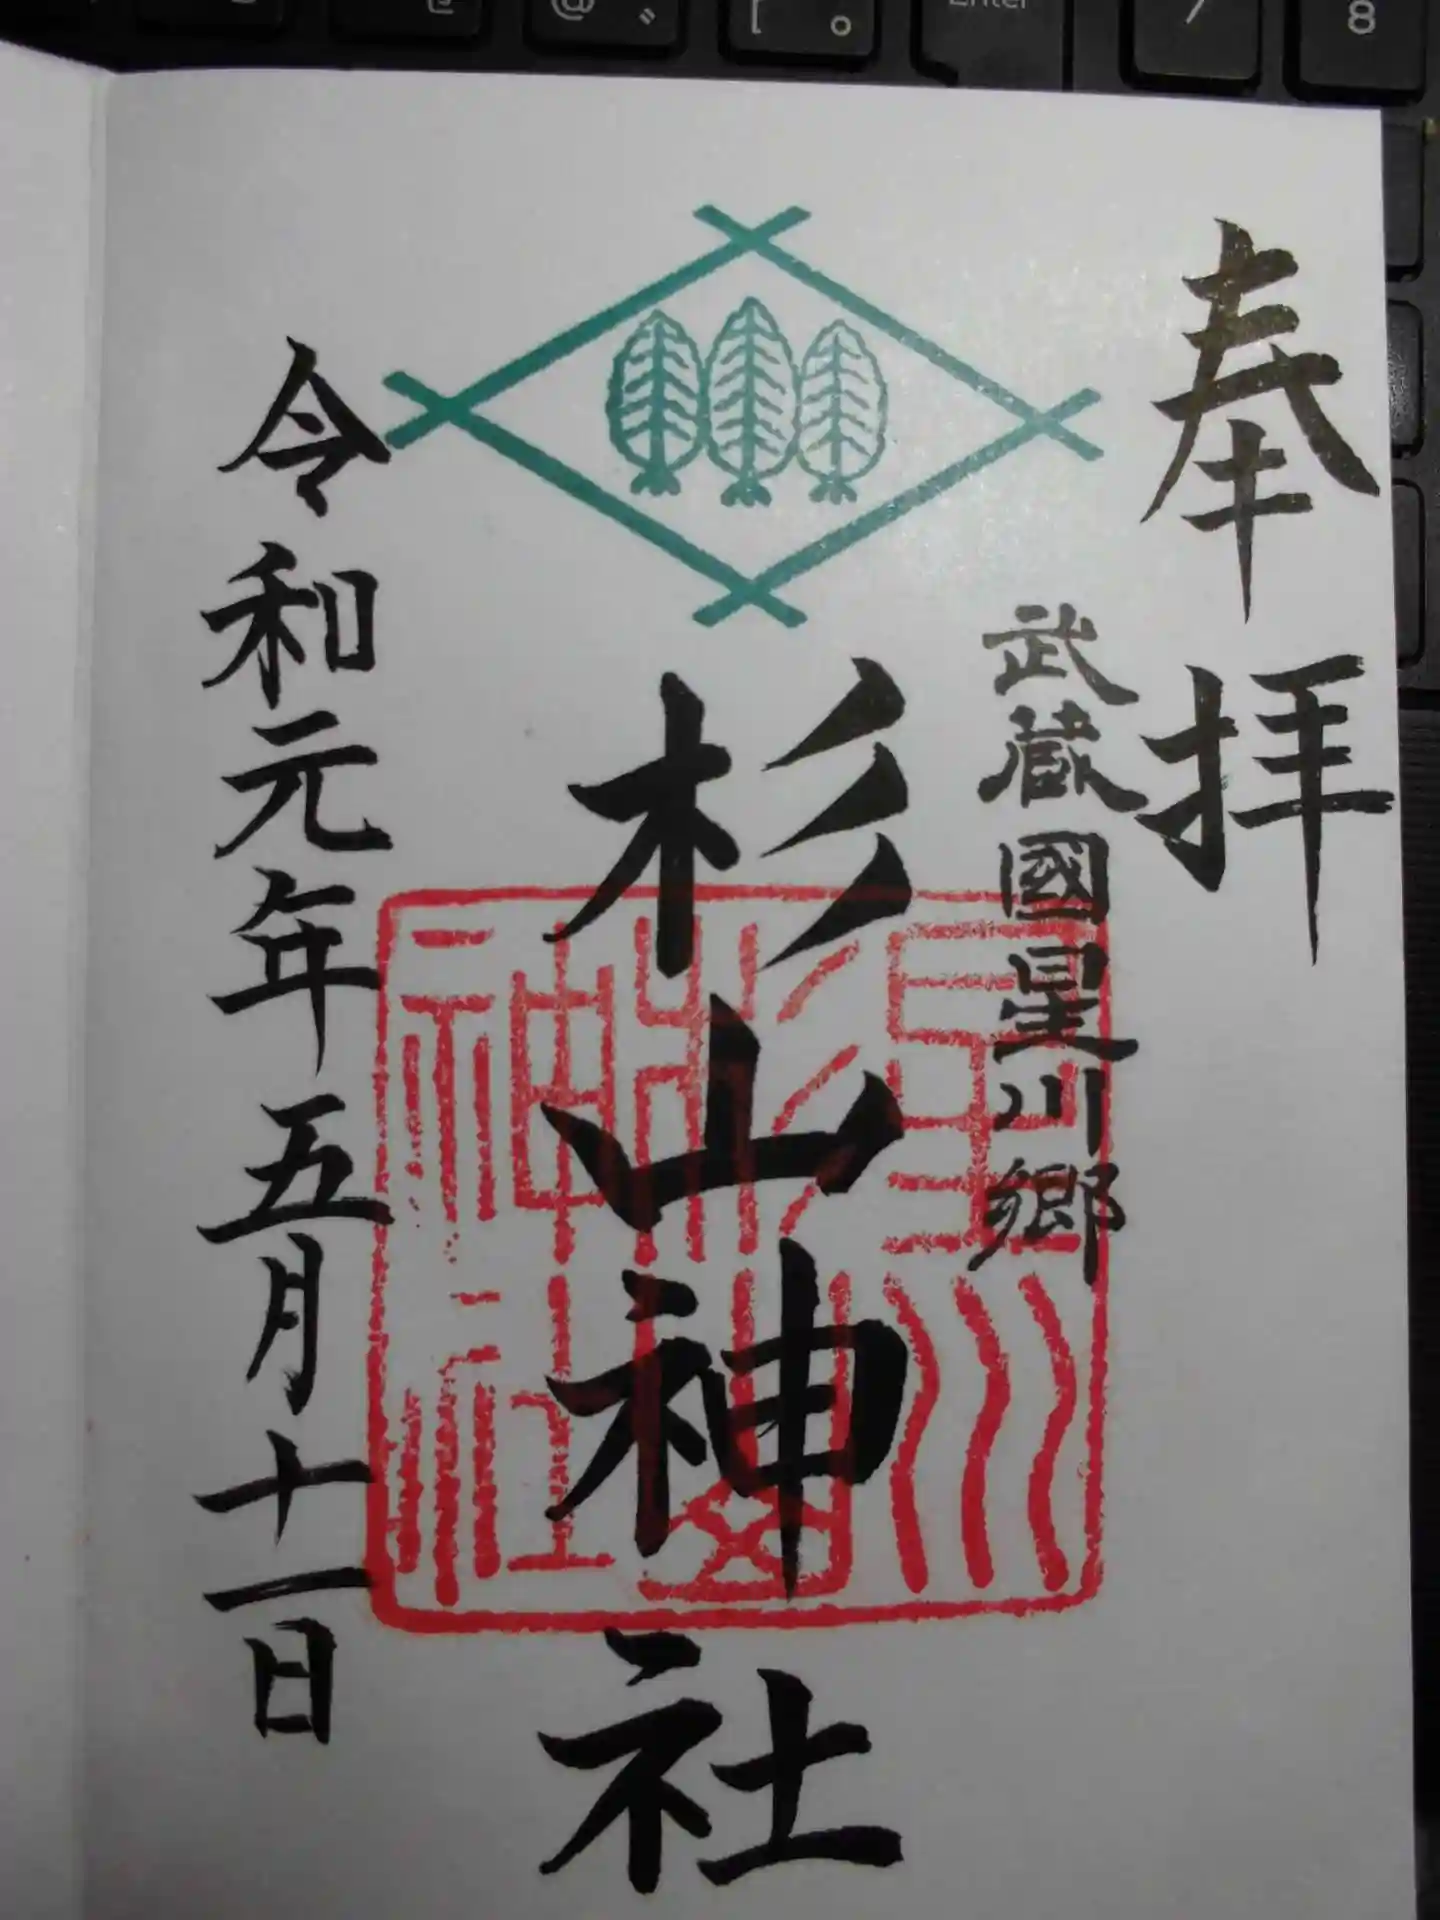 奉拝
武蔵國星川郷
杉山神社
令和元年五月十一日
星川
杉山
神社
Enter
@
[
。
7
8